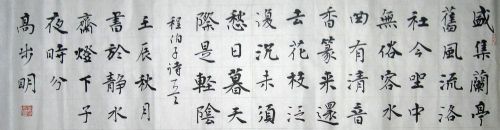 盛集蘭亭
舊風流洛
社今坐中
無俗客水
曲有清音
香篆来還
去花枝泛
復沉未須
愁日暮天
際是輕陰
程伯子詩
壬辰秋月
書於静水
齋燈下子
夜時分
高步明